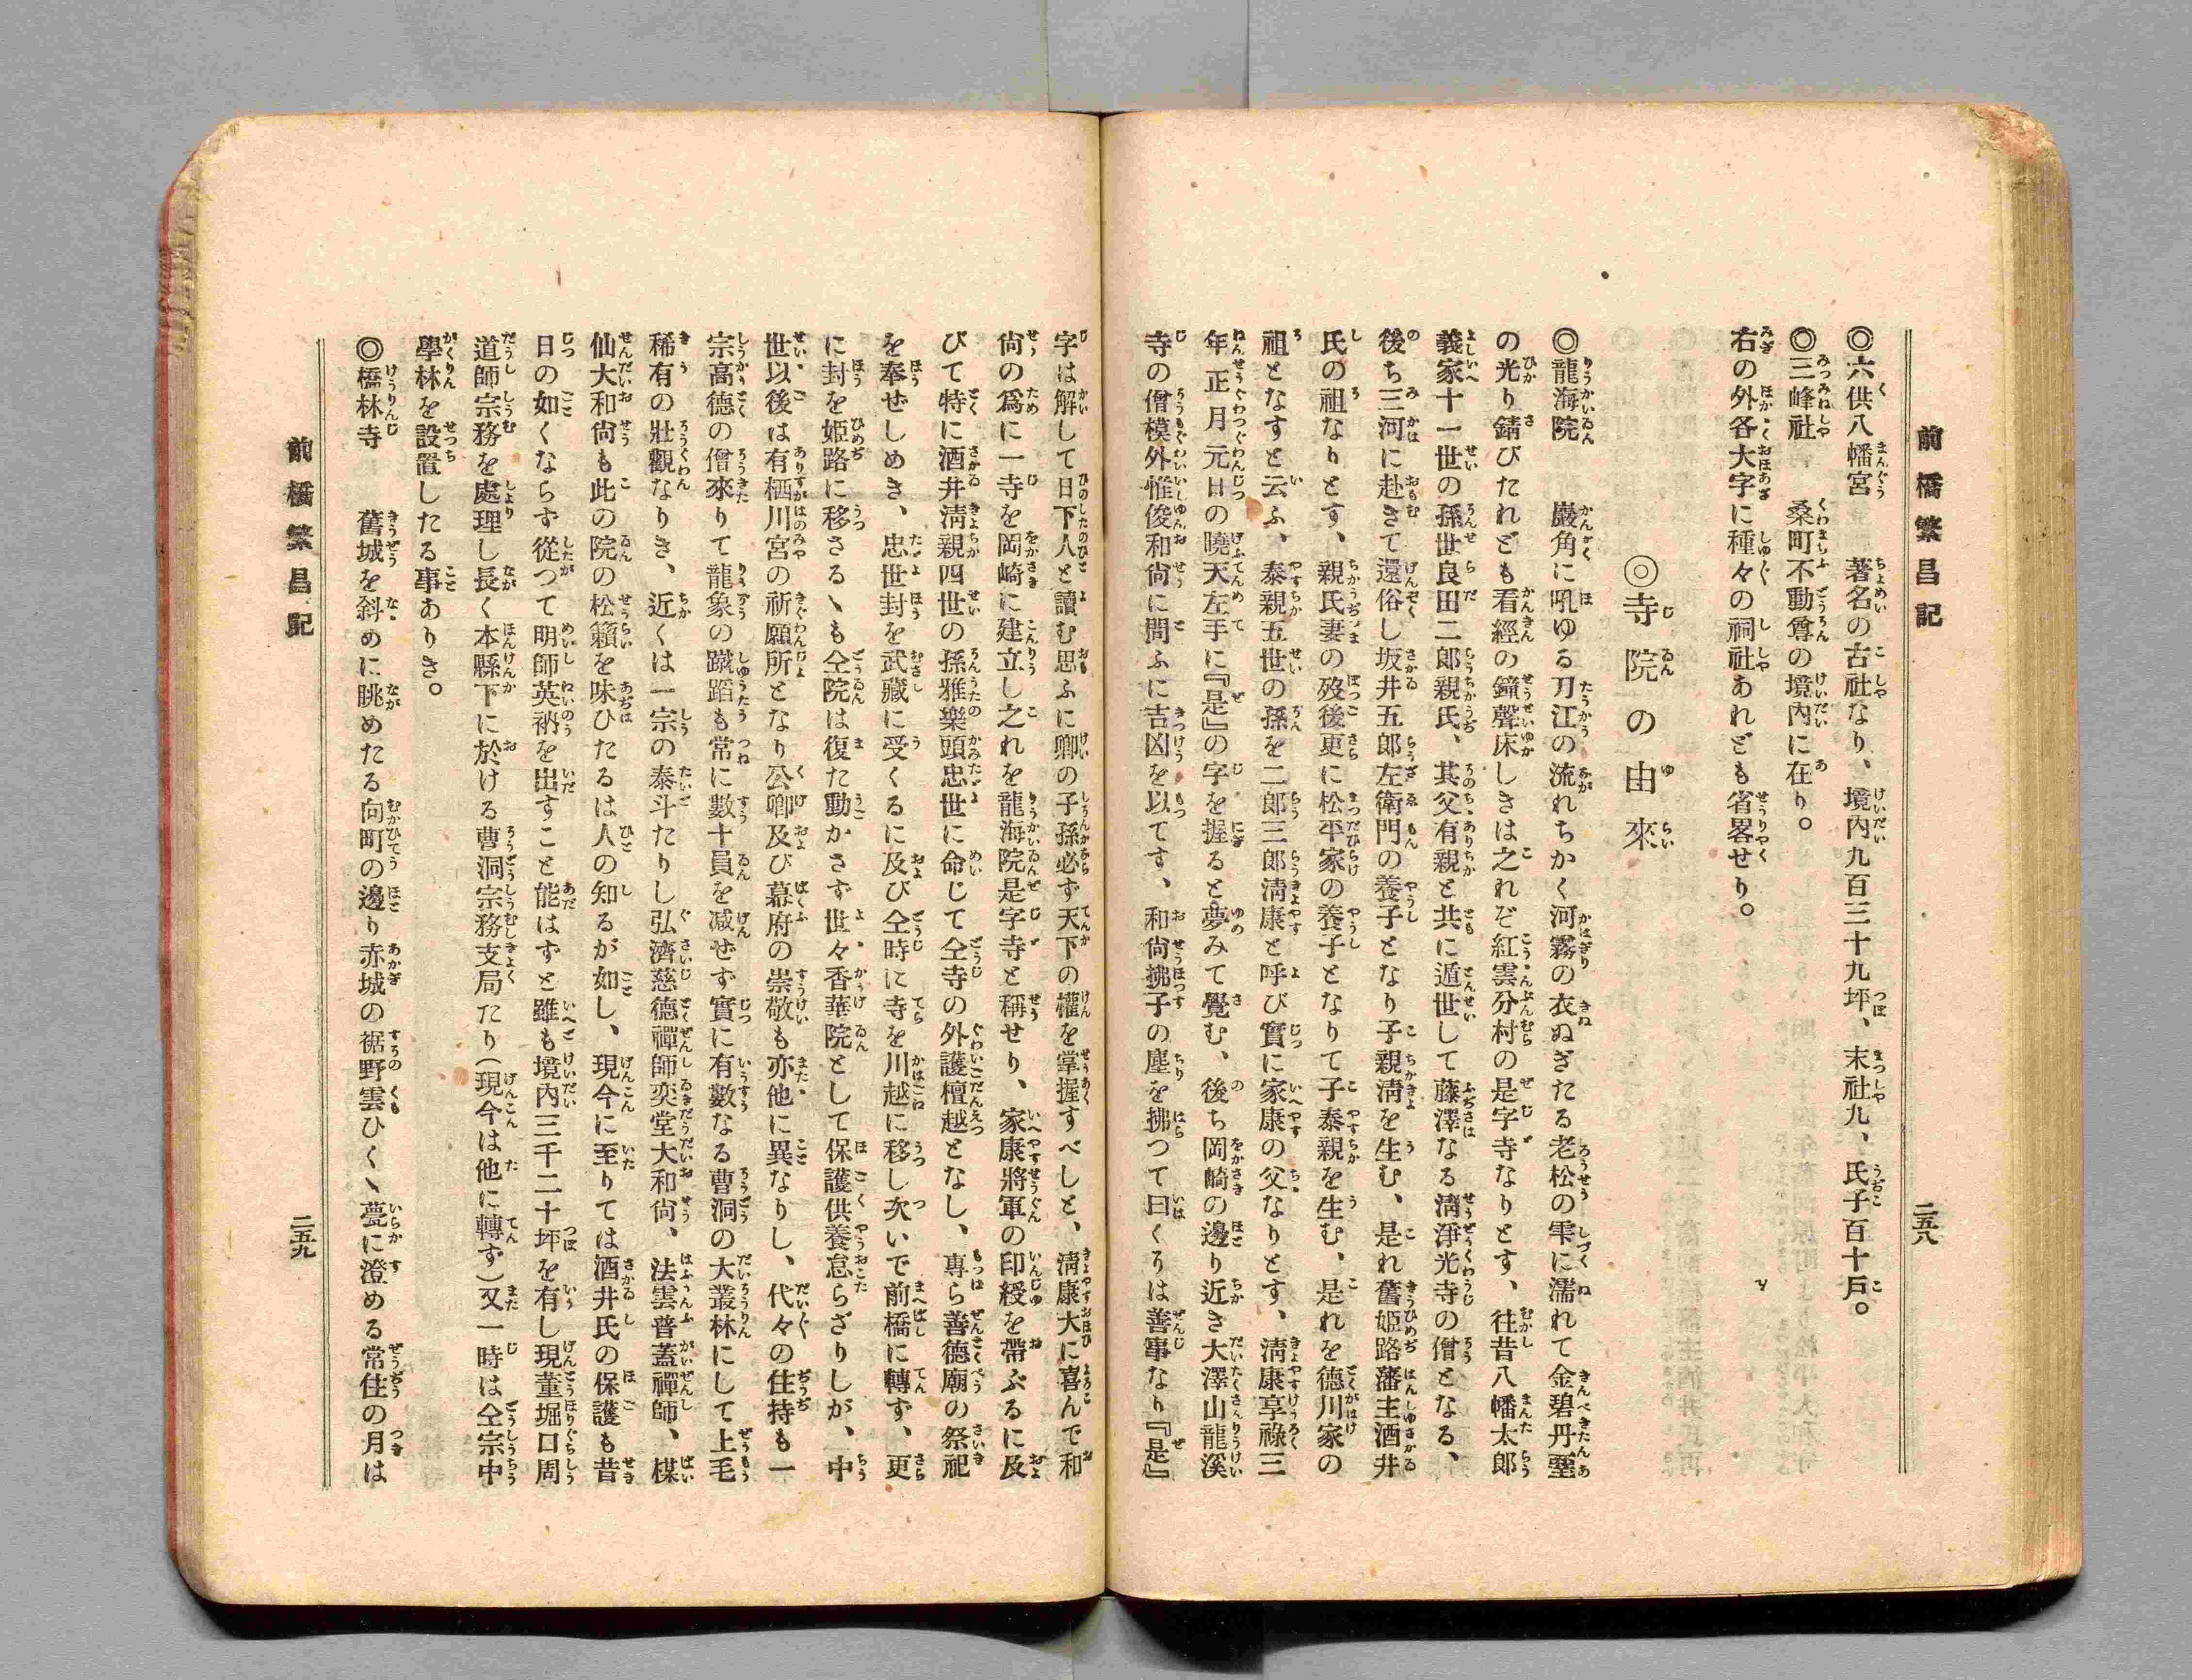 前橋繁昌記
二五八
◎六供八幡宮　著名の古社なり、境内九百三十九坪、末社九、氏子百十戶。
◎三峰社　桑町不動尊の境內に在り。
右の外各大字に種々の祠社あれども省畧せり。
◎寺院の由來
◎龍海院　巖角に吼ゆる刀江の流れちかく河霧の衣ぬぎたる老松の雫に濡れて金碧丹堊
の光り錆びたれども看經の鐘聲床しきは之れぞ紅雲分村の是字寺なりとす、往昔八幡太郎
義家十一世の孫世良田二郎親氏、其父有親と共に遁世して藤澤なる淸淨光寺の僧となる、
後ち三河に赴きて還俗し坂井五郎左衛門の養子となり子親淸を生む、是れ舊姬路藩主酒井
氏の祖なりとす、親氏妻の歿後更に松平家の養子となりて子泰親を生む、是れを德川家の
祖となすと云ふ、泰親五世の孫を二郎三郎淸康と呼び實に家康の父なりとす、淸康享祿三
年正月元日の曉天左手に『是』の字を握ると夢みて覺む、後ち岡崎の邊り近き大澤山龍溪
寺の僧模外惟俊和尙に問ふに吉凶を以てす、和尙拂子の塵を拂つて曰くろは善事なり『是』
字は解して日下人と讀む思ふに卿の子孫必ず天下の權を掌握すべしと、淸康大に喜んで和
尙の爲に一寺を岡崎に建立し之れを龍海院是字寺と稱せり、家康將軍の印綬を帶ぶるに及
びて特に酒井淸親四世の孫雅樂頭忠世に命じて仝寺の外護檀越となし、專ら善德廟の祭祀
を奉ぜしめき、忠世封を武藏に受くるに及び仝時に寺を川越に移し次いで前橋に轉ず、更
に封を姬路に移さるヽも仝院は復た動かさず世々香華院として保護供養怠らざりしが、中
世以後は有栖川宮の祈願所となり公卿及び幕府の崇敬も亦他に異なりし、代々の住持も一
宗高德の僧來りて龍象の蹴蹈も常に數十員を減ぜず實に有數なる曹洞の大叢林にして上毛
稀有の壯觀なりき、近くは一宗の泰斗たりし弘濟慈德禪師奕堂大和尙、法雲普蓋禪師、楳
仙大和尙も此の院の松籟を味ひたるは人の知るが如し、現今に至りては酒井氏の保護も昔
日の如くならず從つて明師英衲を出すこと能はずと雖も境內三千二十坪を有し現董堀口周
道師宗務を處理し長く本縣下に於ける曹洞宗務支局たり（現今は他に轉ず）又一時は仝宗中
學林を設置したる事ありき。
◎橋林寺　舊城を斜めに眺めたる向町の邊り赤城の裾野雲ひくヽ甍に澄める常住の月は
前橋繁昌記
二五九